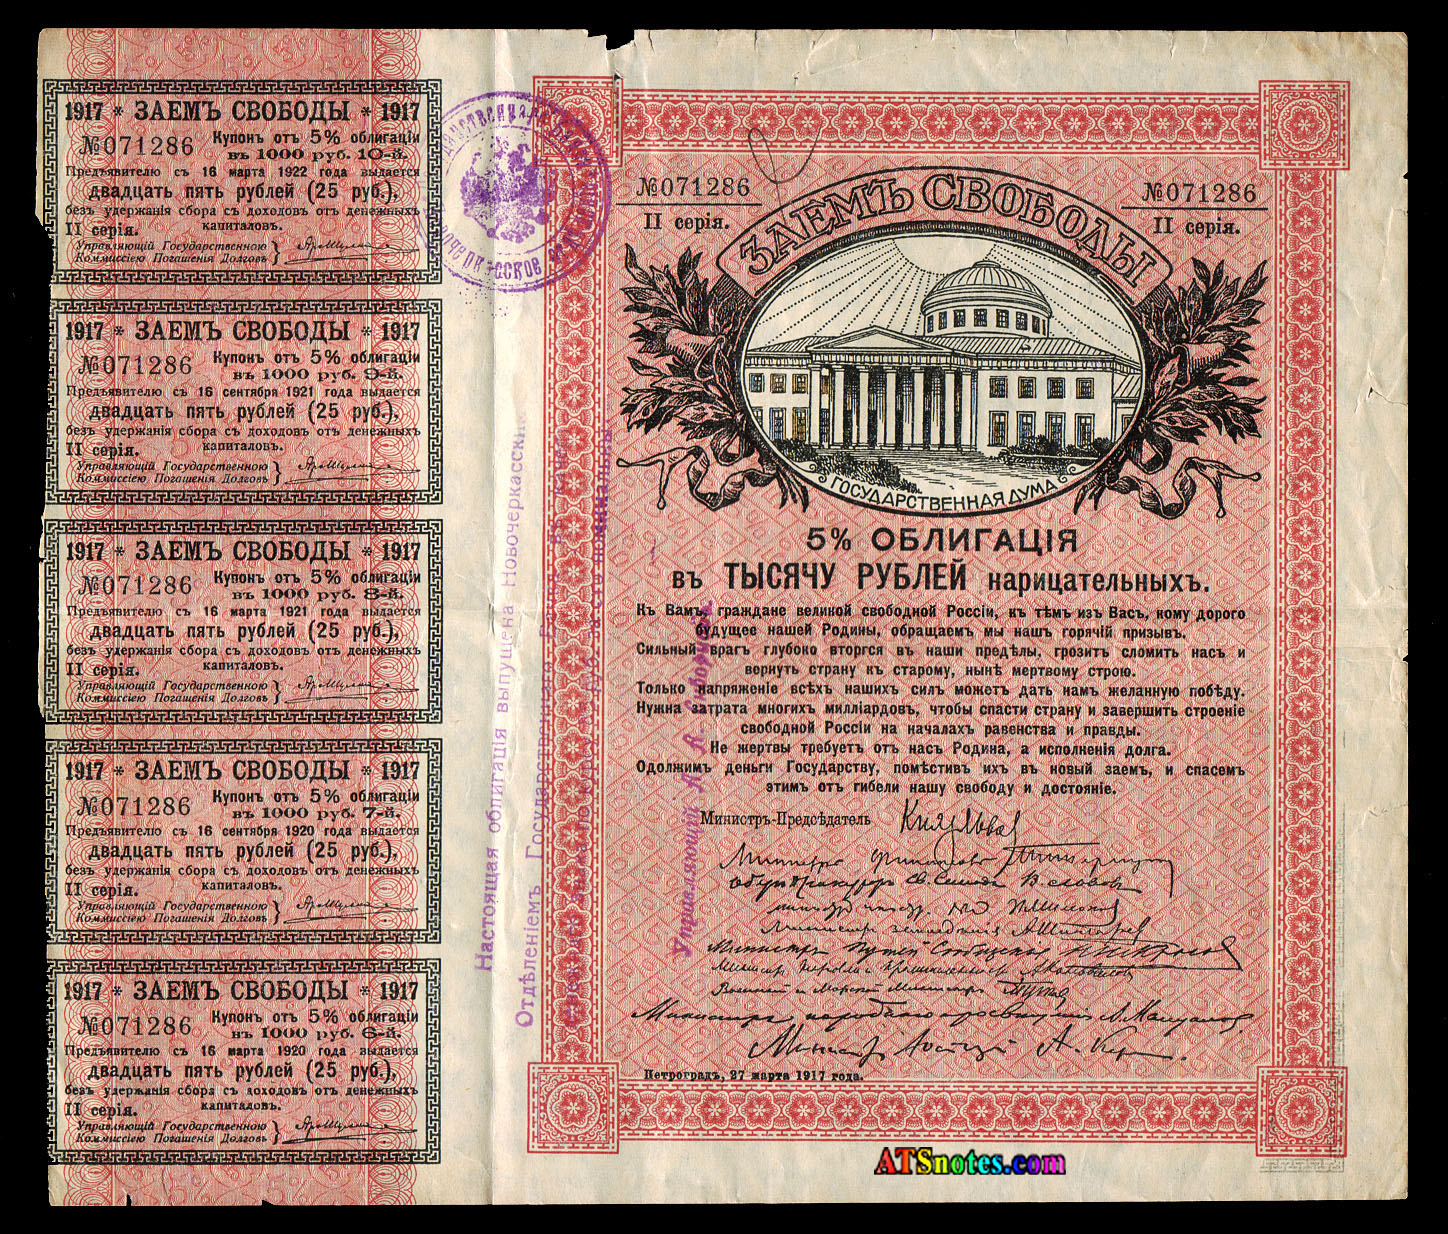 1917 * ЗАЕМЪ СВОБОДЫ * 1917
№071286 Купонъ отъ 5% облигаціи
въ 1000 руб. 10-й.
Предъявителю съ 16 марта 1922 года выдается
двадцать пять рублей (25 руб.),
безъ удержанія сбора съ доходовъ отъ денежныхъ
капиталовъ.
II серія.
Управляющій Государственною
Коммиссіею Погашенія Долговъ
1917 * ЗАЕМЪ СВОБОДЫ * 1917
№071286 Купонъ отъ 5% облигаціи
въ 1000 руб. 9-й.
Предъявителю съ 16 сентября 1921 года выдается
двадцать пять рублей (25 руб.),
безъ удержанія сбора съ доходовъ отъ денежныхъ
капиталовъ.
II серія.
Управляющій Государственною
Коммиссіею Погашенія Долговъ
1917 * ЗАЕМЪ СВОБОДЫ * 1917
№071286 Купонъ отъ 5% облигаціи
въ 1000 руб. 8-й.
Предъявителю съ 16 марта 1921 года выдается
двадцать пять рублей (25 руб.),
безъ удержанія сбора съ доходовъ отъ денежныхъ
капиталовъ.
II серія.
Управляющій Государственною
Коммиссіею Погашенія Долговъ
1917 * ЗАЕМЪ СВОБОДЫ * 1917
№071286 Купонъ отъ 5% облигаціи
въ 1000 руб. 7-й.
Предъявителю съ 16 сентября 1920 года выдается
двадцать пять рублей (25 руб.),
безъ удержанія сбора съ доходовъ отъ денежныхъ
капиталовъ.
II серія.
Управляющій Государственною
Коммиссіею Погашенія Долговъ
1917 * ЗАЕМЪ СВОБОДЫ * 1917
№071286 Купонъ отъ 5% облигаціи
въ 1000 руб. 6-й.
Предъявителю съ 16 марта 1920 года выдается
двадцать пять рублей (25 руб.),
безъ удержанія сбора съ доходовъ отъ денежныхъ
капиталовъ.
II серія.
Управляющій Государственною
Коммиссіею Погашенія Долговъ
Настоящая облигація выпущена Новочеркасск
Отдѣленіемъ Государственнаго
Управляющій
№071286
II серія.
ЗАЕМЪ СВОБОДЫ
№071286
II серія.
ГОСУДАРСТВЕННАЯ ДУМА
5% ОБЛИГАЦІЯ
въ ТЫСЯЧУ РУБЛЕЙ нарицательныхъ.
Къ Вамъ, граждане великой свободной Россіи, къ тѣмъ изъ Васъ, кому дорого
будущее нашей Родины, обращаемъ мы нашъ горячій призывъ.
Сильный врагъ глубоко вторгся въ наши предѣлы, грозитъ сломить насъ и
вернуть страну къ старому, нынѣ мертвому строю.
Только напряженіе всѣхъ нашихъ силъ можетъ дать намъ желанную побѣду.
Нужна затрата многихъ милліардовъ, чтобы спасти страну и завершить строеніе
свободной Россіи на началахъ равенства и правды.
Не жертвы требуетъ отъ насъ Родина, а исполненія долга.
Одолжимъ деньги Государству, помѣстивъ ихъ въ новый заемъ, и спасемъ
этимъ отъ гибели нашу свободу и достояніе.
Министръ-Предсѣдатель Князь Львов
Министръ финансовъ
Оберъ Прокуроръ Св. Синода
Министръ земледѣлія
Министръ Путей Сообщенія
Министръ Торговли и Промышленности
Военный и Морской Министръ
Министръ народнаго просвѣщенія
Министръ Юстиціи
Петроградъ, 27 марта 1917 года.
ATSnotes.com